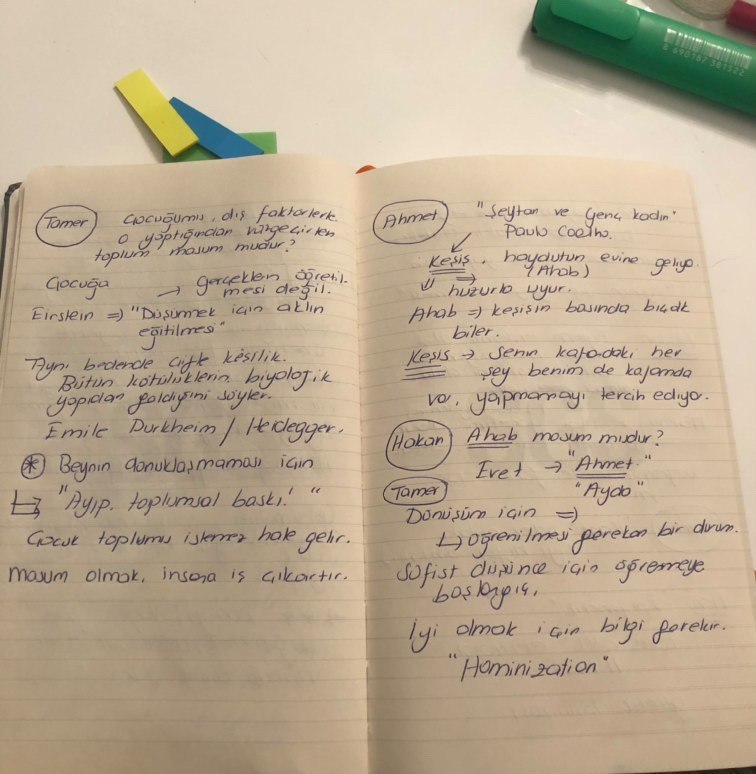 Tamer
Çocuğumu, dış faktörlerle
o yaptığından vazgeçirten
toplum, masum mudur?
Çocuğa → gerçeklen öğretil-
mesi değil.
Einstein => "Düşünmek için aklın
eğitilmesi"
Aynı bedende çifte kişilik.
Bütün kötülüklerin biyolojik
yapıdan galdığını söyler.
Emile Durkheim / Heidegger.
* Beynin donuklaşmaması için
"Ayıp, toplumsal baskı! "
Çocuk toplumu istemez hale gelir.
Masum olmak, insana iş çıkartır.
Ahmet
"Şeytan ve Genç Kadın"
Paulo Coelho.
Keşiş, haydutun evine geliyo.
(Ahab)
huzurla uyur.
Ahab => keşişin başında bıçak
biler.
Keşiş → Senin kafandaki her
şey benim de kafamda
var, yapmamayı tercih ediyor.
Hakan Ahab masum mudur?
Evet → "Ahmet"
"Ayda"
Tamer
Dönüşüm için =>
öğrenilmesi gereken bir durum.
Sofist düşünce için öğrenmeye
başlangıç.
İyi olmak için bilgi gerekir.
"Hominization"
8 690167 361322